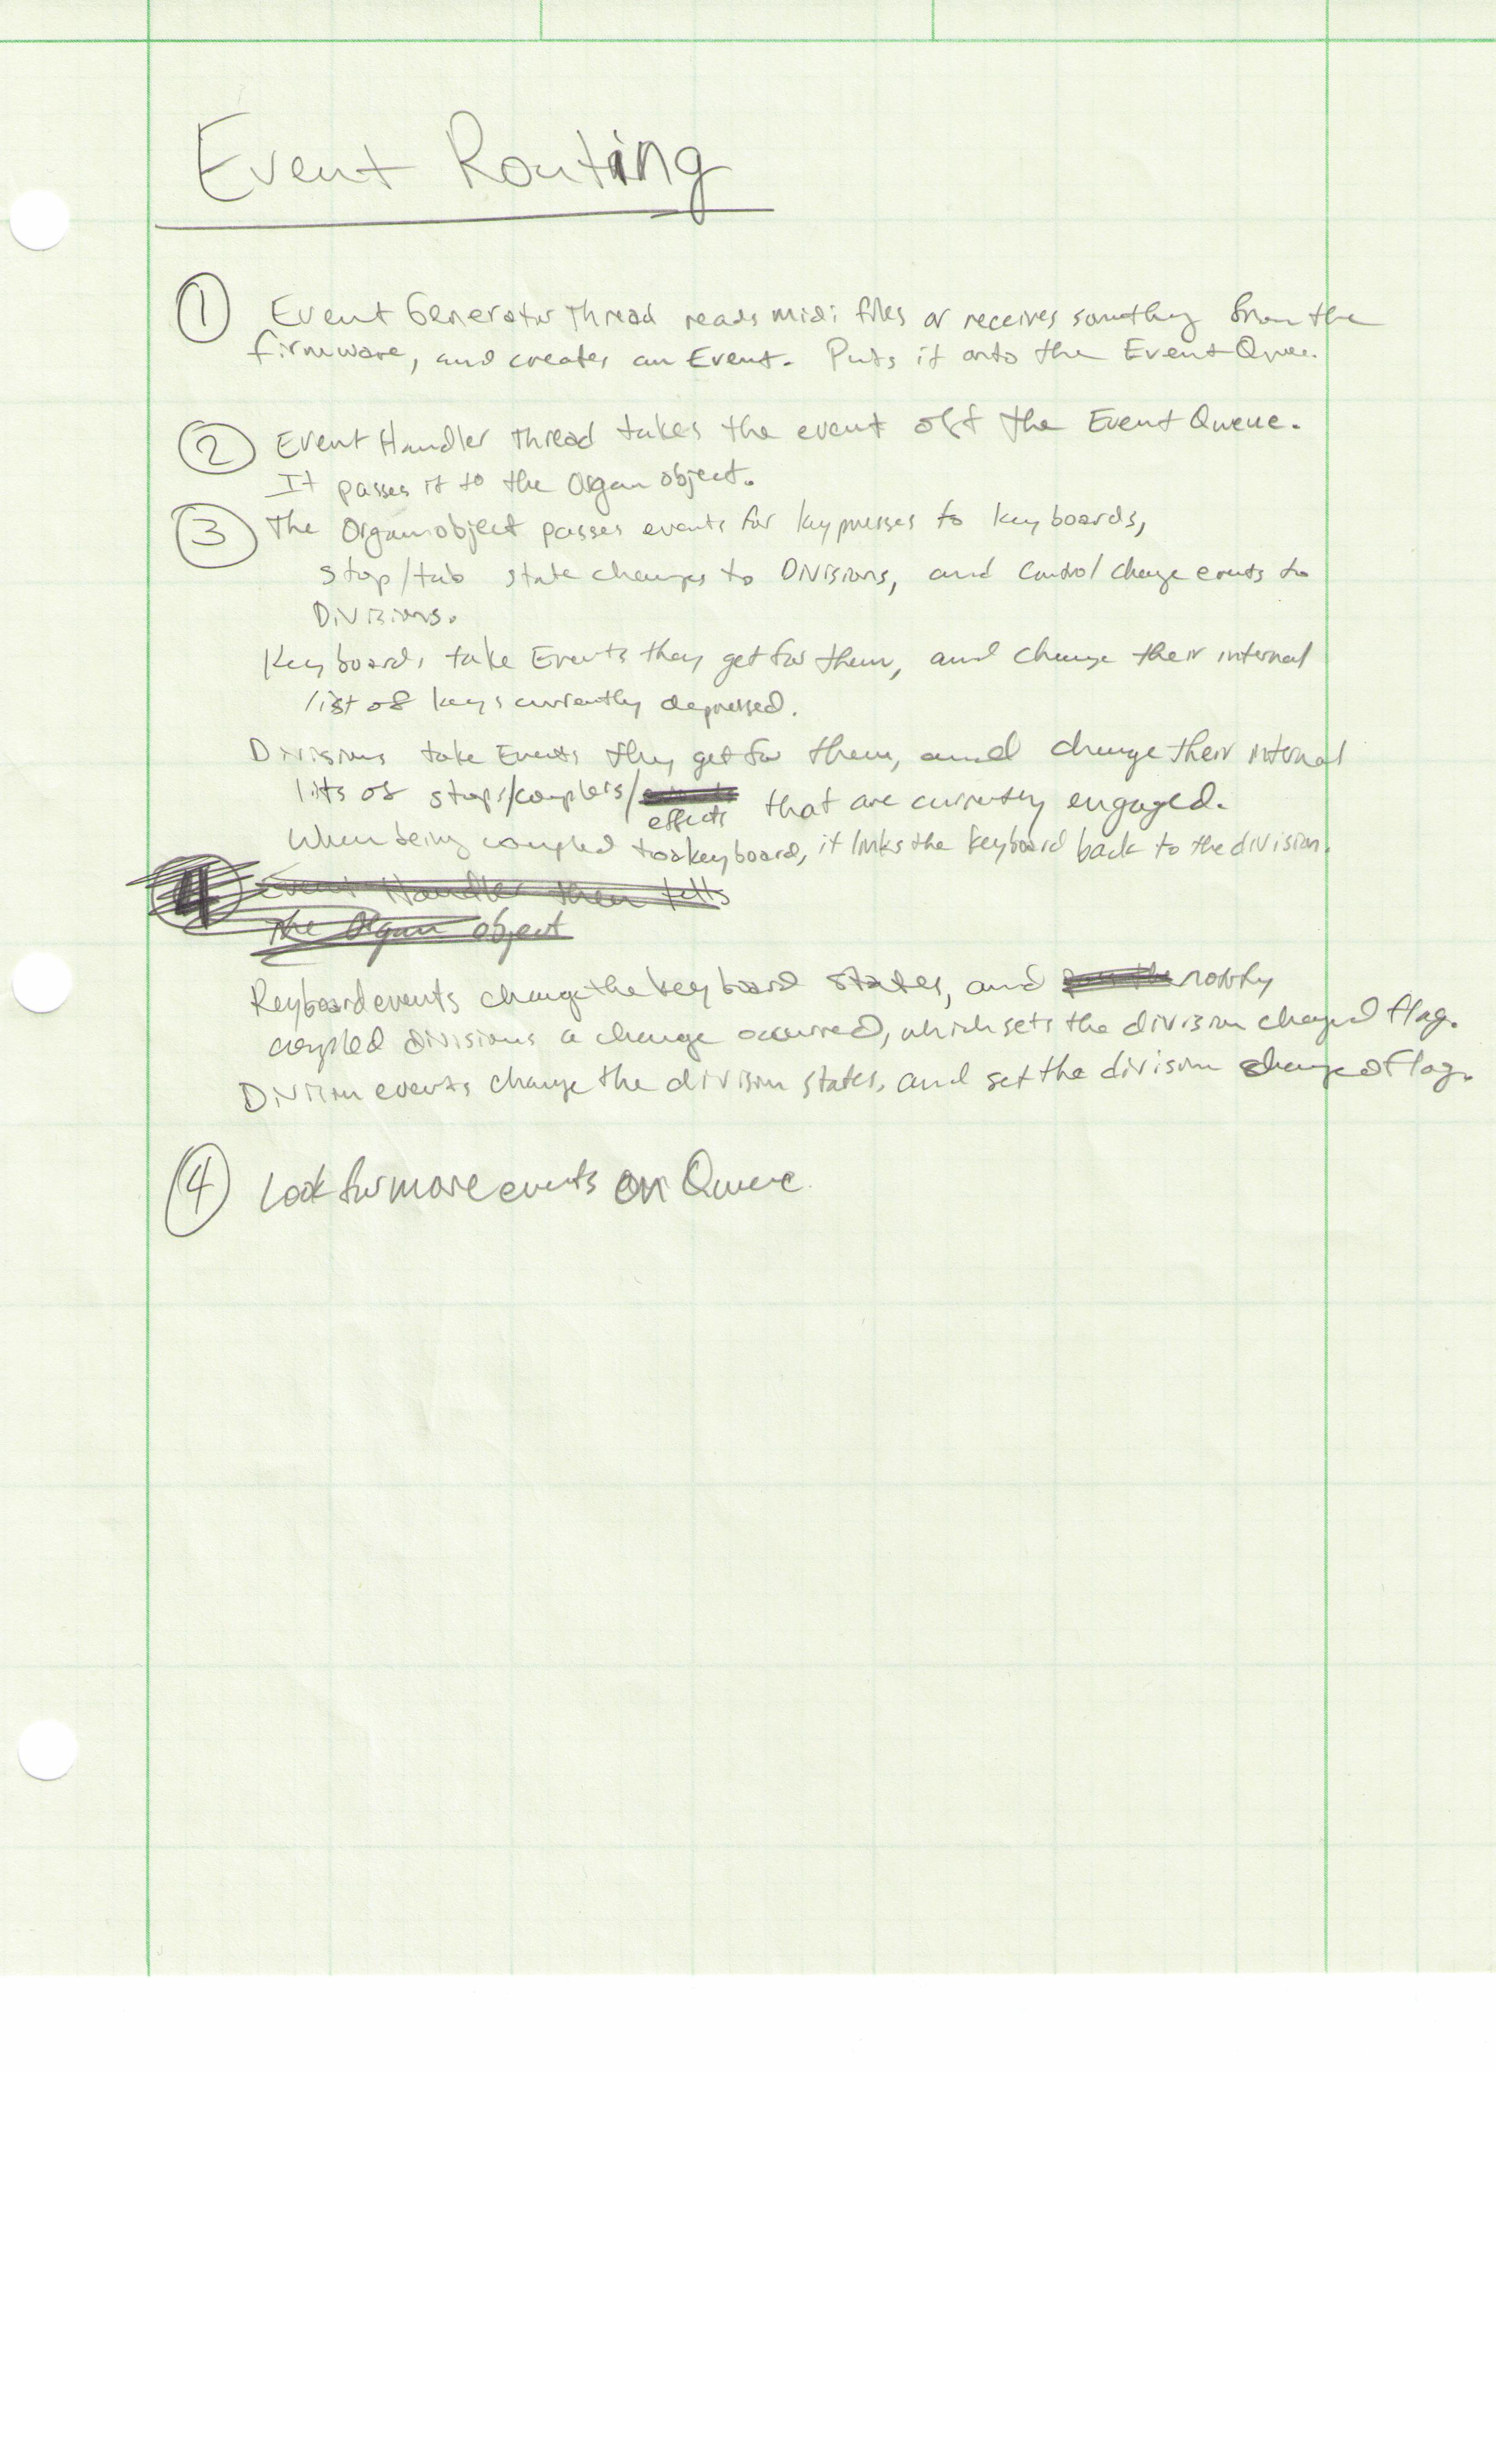 Event Routing
① Event Generator Thread reads midi files or receives something from the
firmware, and creates an Event. Puts it onto the Event Queue.
② Event Handler Thread takes the event off the Event Queue.
It passes it to the Organ object.
③ The Organ object passes events for keypresses to keyboards,
stop/tab state changes to Divisions, and control change events to
Divisions.
Keyboards take Events they get for them, and change their internal
list of keys currently depressed.
Divisions take Events they get for them, and change their internal
lists of stops/couplers/ that are currently engaged.
effects
When being coupled to a keyboard, it links the keyboard back to the division.
4 Event Handler then tells
the Organ object
Keyboard events change the keyboard states, and notify
coupled divisions a change occurred, which sets the division changed flag.
Division events change the division states, and set the division changed flag.
④ Look for more events on Queue.